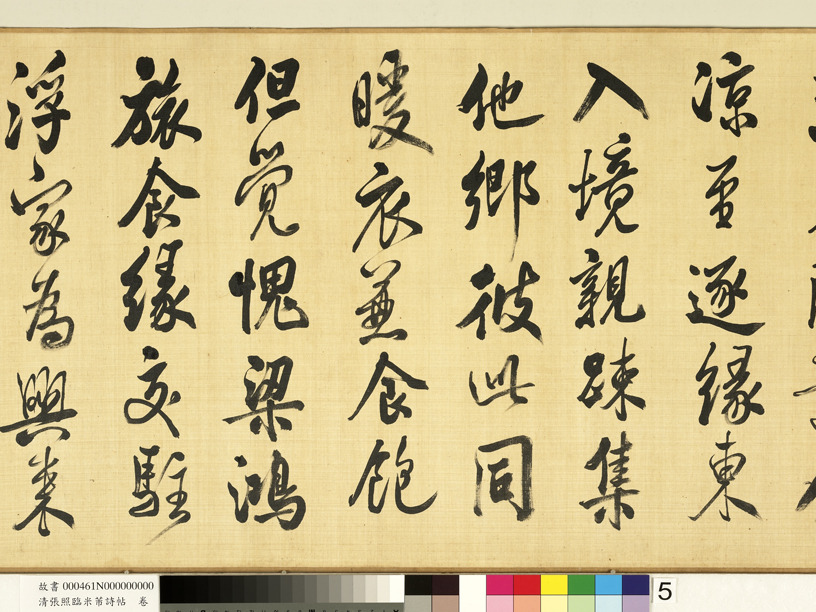 凉至逐緣東
入境親疎集
他鄉彼此同
暖衣兼食飽
但覺愧梁鴻
旅食緣交駐
浮家為興來
故書 000461N000000000
清張照臨米芾詩帖 卷
5